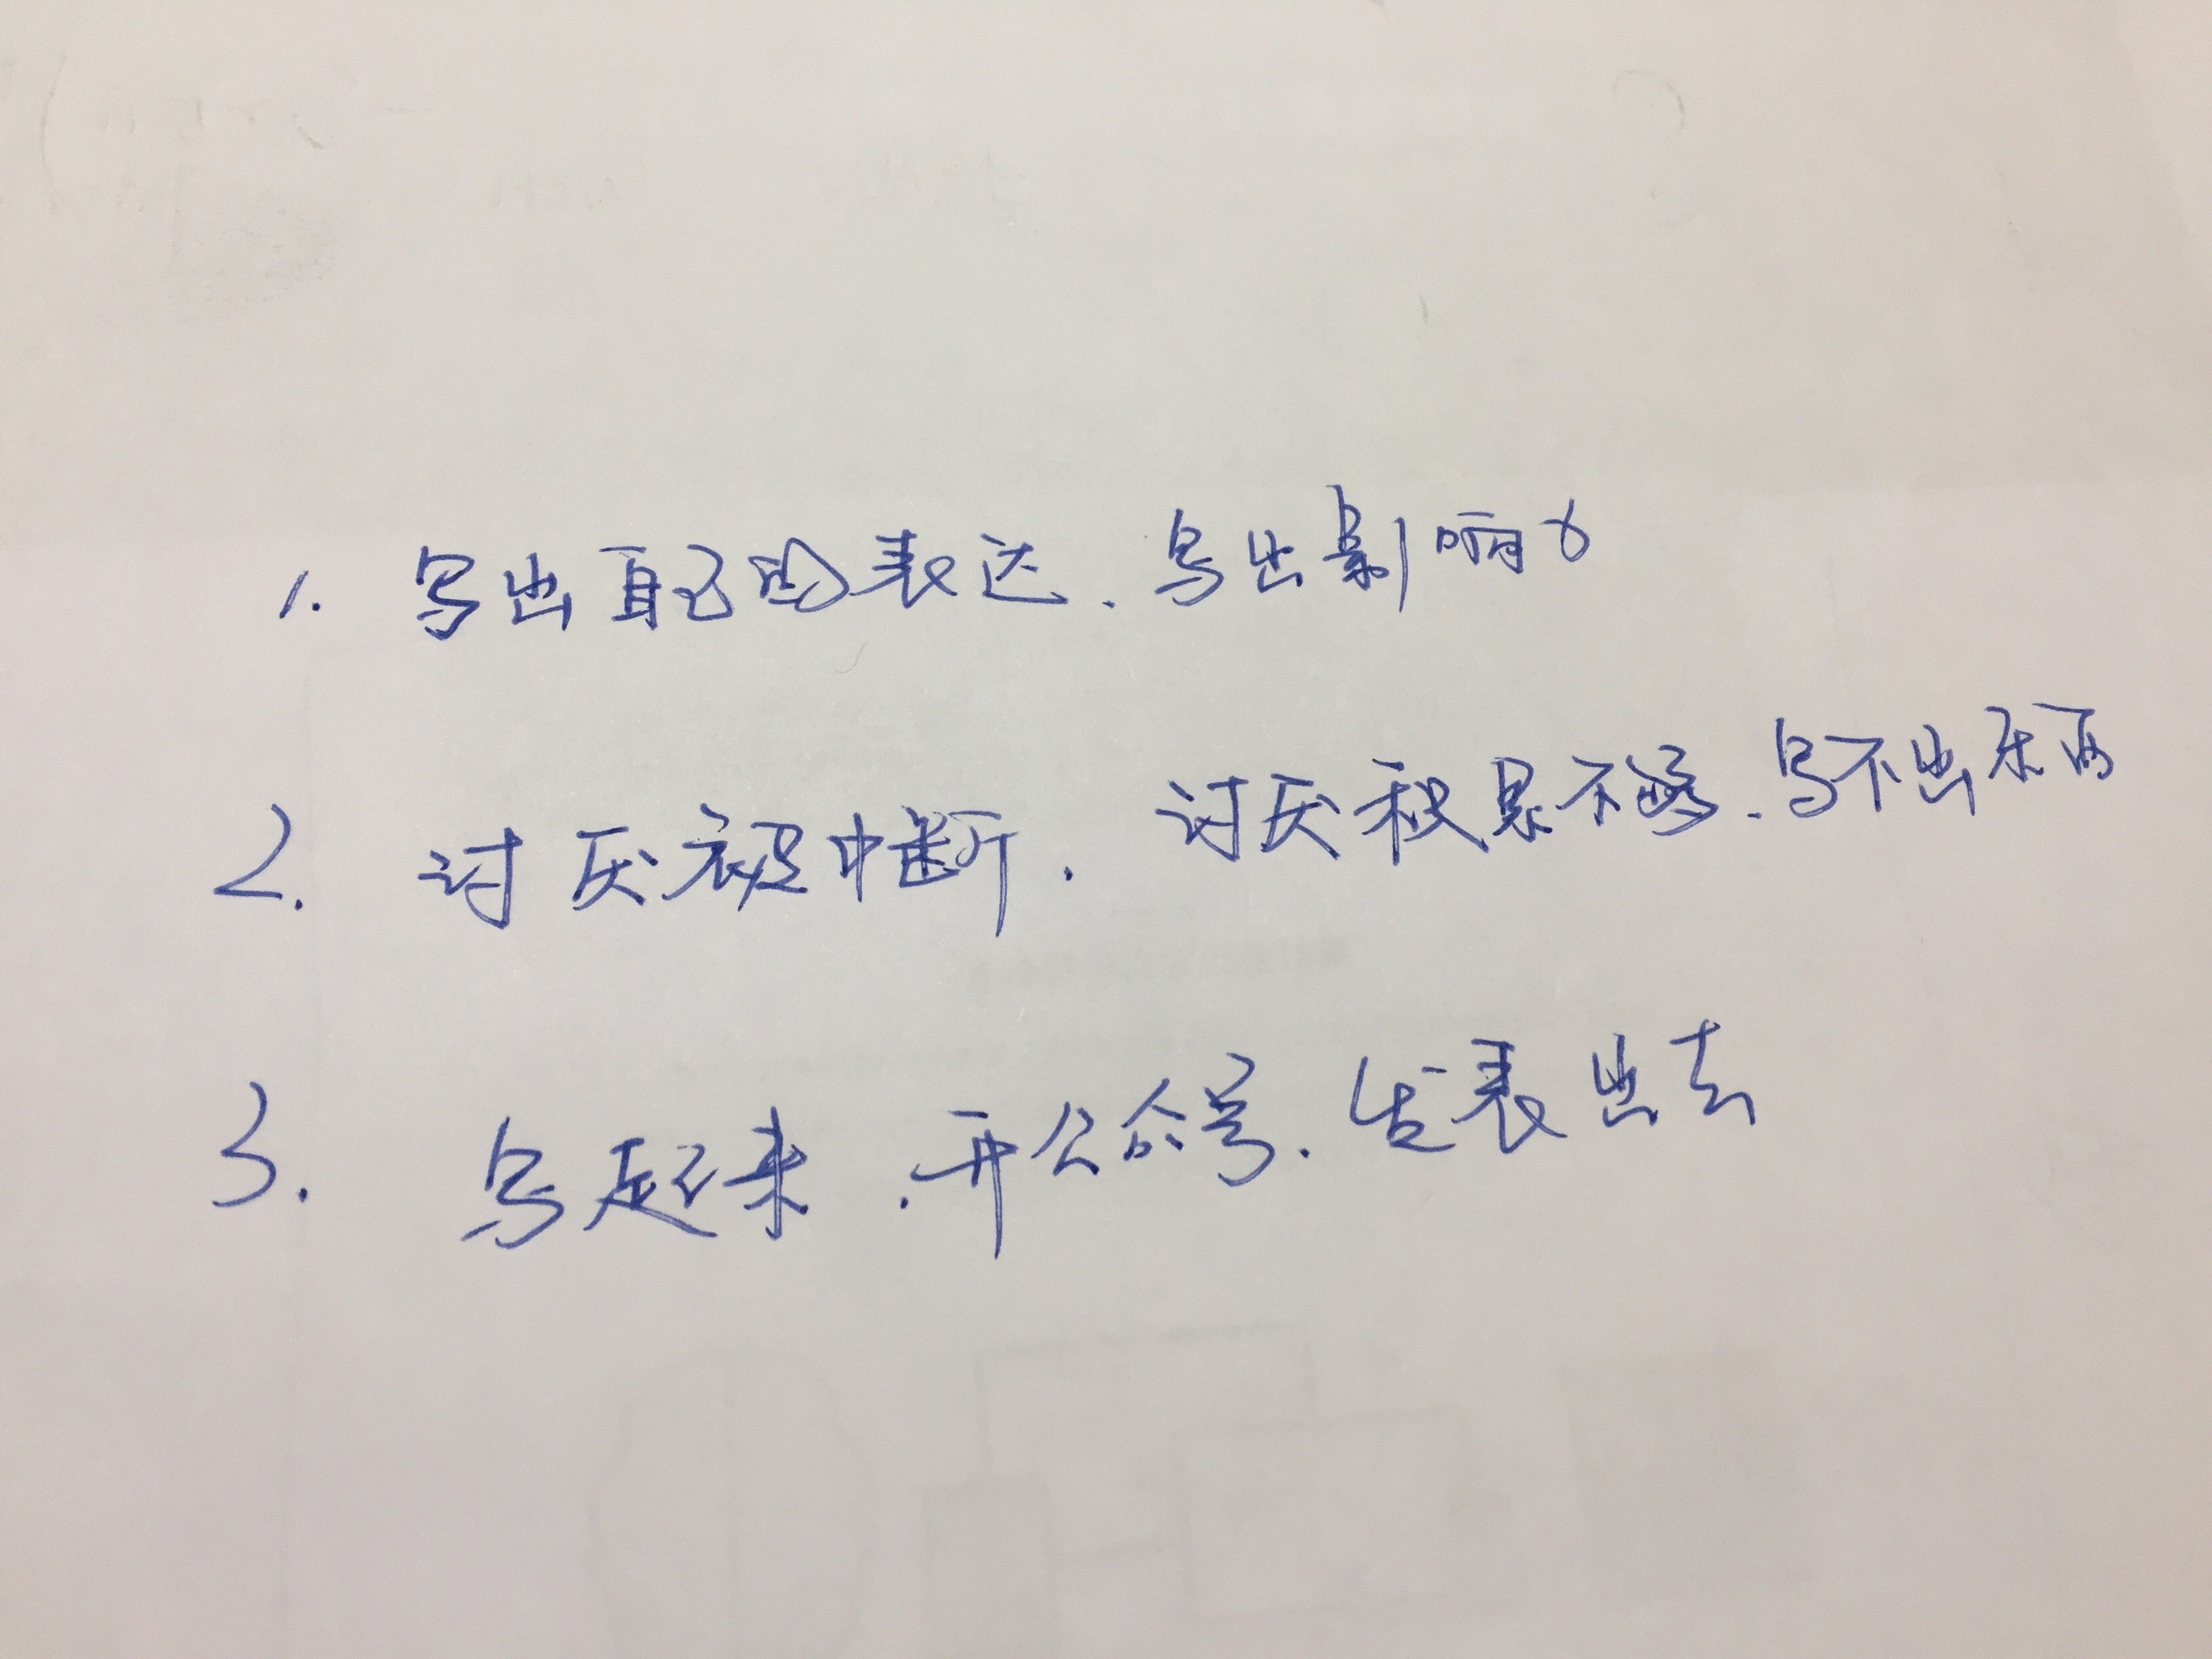 1. 写出自己的表达、写出影响力
2. 讨厌被中断. 讨厌积累不够、写不出东西
3. 写起来、开公众号、发表出去